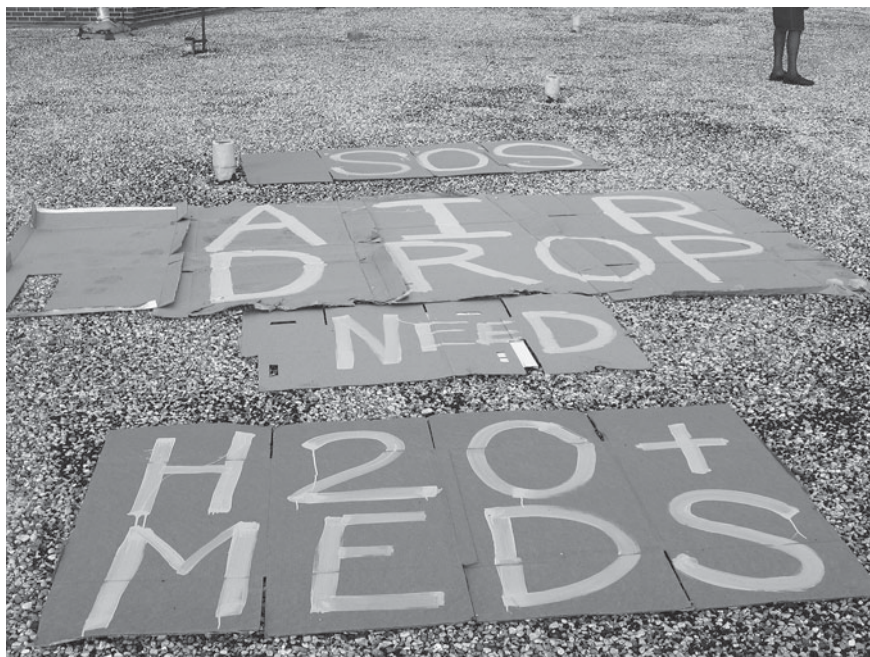 SOS
AIR
DROP
NEED
H2O+
MEDS